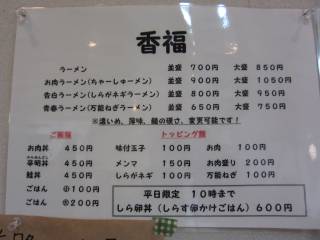 香福
ラーメン 並盛 700円 大盛 850円
お肉ラーメン(ちゃーしゅーメン) 並盛 900円 大盛 1050円
告白ラーメン(しらがネギラーメン) 並盛 800円 大盛 950円
青春ラーメン(万能ねぎラーメン) 並盛 650円 大盛 750円
※濃いめ、薄味、麺の硬さ、変更可能です!
ご飯類 トッピング類
お肉丼 450円 味付玉子 100円 お肉 100円
450円 メンマ 150円 お肉盛り 200円
鮭丼 450円 しらがネギ 100円 万能ねぎ 100円
ごはん 小100円
ごはん 大200円
平日限定 10時まで
しら卵丼(しらす卵かけごはん)600円